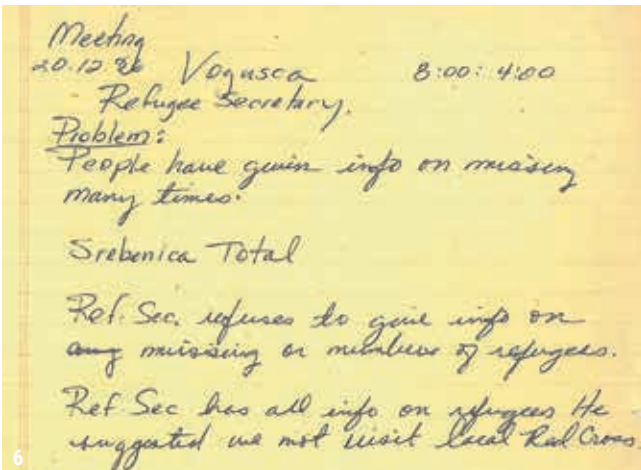 Meeting
20.12.96 Vogusca 8:00: 4:00
Refugee Secretary.
Problem:
People have given info on missing
many times.
Srebenica Total
Ref. Sec. refuses to give info on
any missing or numbers of refugees.
Ref Sec has all info on refugees He
suggested we not visit local Red Cross
6